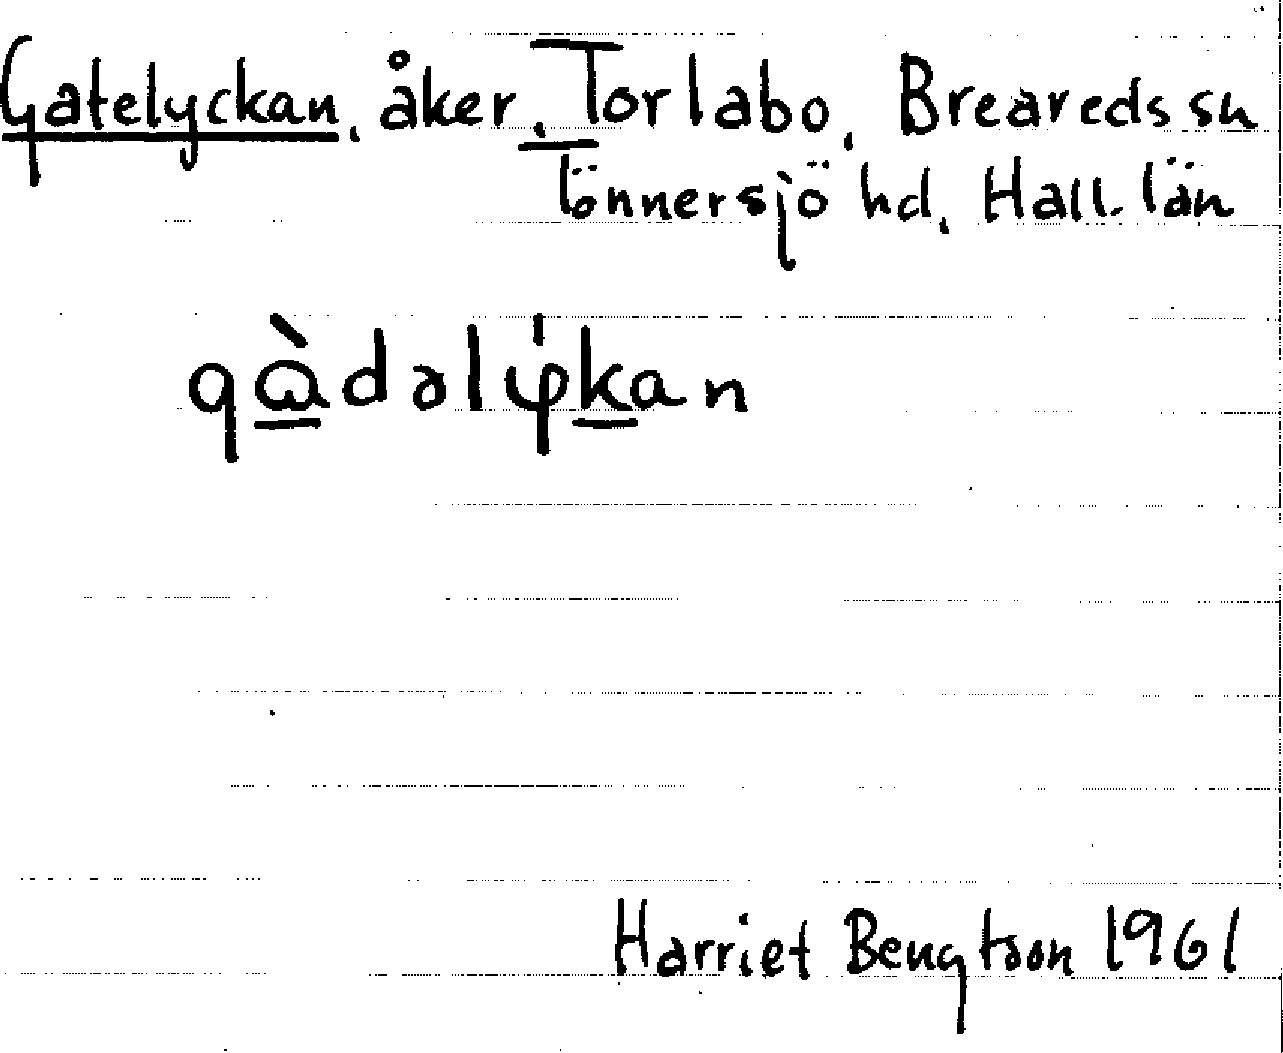 Gatelyckan, åker, Torlabo, Breareds sn
Tönnersjö hd, Hall. län
gɑ̀dəlykan
Harriet Bengtson 1961